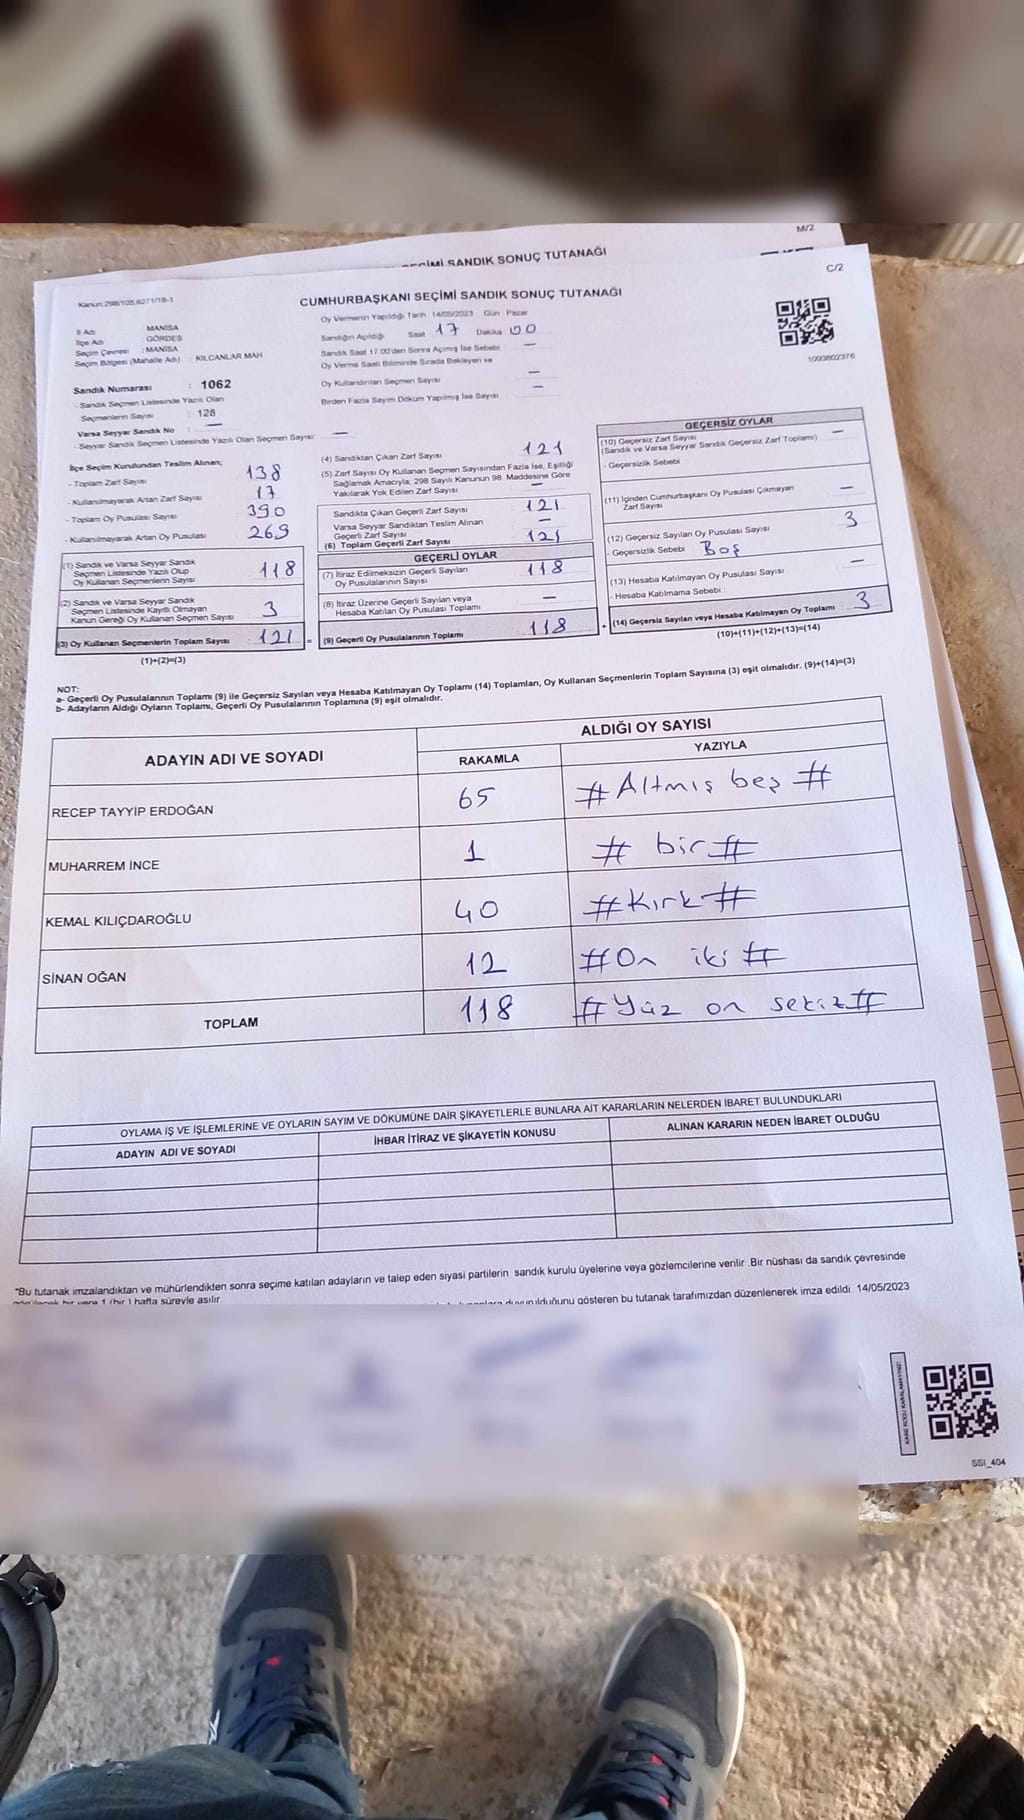 M/2
SANDIK SONUÇ TUTANAĞI
C/2
Kanun:298/105,6271/18-1
CUMHURBAŞKANI SEÇİMİ SANDIK SONUÇ TUTANAĞI
İl Adı : MANİSA
İlçe Adı : GÖRDES
Seçim Çevresi : MANİSA
Seçim Bölgesi (Mahalle Adı) : KILCANLAR MAH
Sandık Numarası : 1062
- Sandık Seçmen Listesinde Yazılı Olan
Seçmenlerin Sayısı : 128
Varsa Seyyar Sandık No : —
- Seyyar Sandık Seçmen Listesinde Yazılı Olan Seçmen Sayısı: —
Oy Vermenin Yapıldığı Tarih :14/05/2023 Gün : Pazar
Sandığın Açıldığı Saat : 17 Dakika : 00
Sandık Saat 17:00'den Sonra Açılmış İse Sebebi : —
Oy Verme Saati Bitiminde Sırada Bekleyen ve
Oy Kullandırılan Seçmen Sayısı : —
Birden Fazla Sayım Döküm Yapılmış İse Sayısı : —
1093802376
İlçe Seçim Kurulundan Teslim Alınan;
- Toplam Zarf Sayısı : 138
- Kullanılmayarak Artan Zarf Sayısı : 17
- Toplam Oy Pusulası Sayısı : 390
- Kullanılmayarak Artan Oy Pusulası : 269
(1) Sandık ve Varsa Seyyar Sandık
Seçmen Listesinde Yazılı Olup
Oy Kullanan Seçmenlerin Sayısı : 118
(2) Sandık ve Varsa Seyyar Sandık
Seçmen Listesinde Kayıtlı Olmayan
Kanun Gereği Oy Kullanan Seçmen Sayısı : 3
(3) Oy Kullanan Seçmenlerin Toplam Sayısı : 121 =
(1)+(2)=(3)
(4) Sandıktan Çıkan Zarf Sayısı : 121
(5) Zarf Sayısı Oy Kullanan Seçmen Sayısından Fazla İse, Eşitliği
Sağlamak Amacıyla, 298 Sayılı Kanunun 98. Maddesine Göre
Yakılarak Yok Edilen Zarf Sayısı : —
Sandıkta Çıkan Geçerli Zarf Sayısı : 121
Varsa Seyyar Sandıktan Teslim Alınan
Geçerli Zarf Sayısı : —
(6) Toplam Geçerli Zarf Sayısı : 121
GEÇERLİ OYLAR
(7) İtiraz Edilmeksizin Geçerli Sayılan
Oy Pusulalarının Sayısı : 118
(8) İtiraz Üzerine Geçerli Sayılan veya
Hesaba Katılan Oy Pusulası Toplamı : —
(9) Geçerli Oy Pusulalarının Toplamı : 118 +
GEÇERSİZ OYLAR
(10) Geçersiz Zarf Sayısı : —
(Sandık ve Varsa Seyyar Sandık Geçersiz Zarf Toplamı)
- Geçersizlik Sebebi
(11) İçinden Cumhurbaşkanı Oy Pusulası Çıkmayan
Zarf Sayısı : —
(12) Geçersiz Sayılan Oy Pusulası Sayısı : 3
- Geçersizlik Sebebi : Boş
(13) Hesaba Katılmayan Oy Pusulası Sayısı : —
- Hesaba Katılmama Sebebi :
(14) Geçersiz Sayılan veya Hesaba Katılmayan Oy Toplamı : 3
(10)+(11)+(12)+(13)=(14)
NOT:
a- Geçerli Oy Pusulalarının Toplamı (9) ile Geçersiz Sayılan veya Hesaba Katılmayan Oy Toplamı (14) Toplamları, Oy Kullanan Seçmenlerin Toplam Sayısına (3) eşit olmalıdır. (9)+(14)=(3)
b- Adayların Aldığı Oyların Toplamı, Geçerli Oy Pusulalarının Toplamına (9) eşit olmalıdır.
ADAYIN ADI VE SOYADI
ALDIĞI OY SAYISI
RAKAMLA YAZIYLA
RECEP TAYYİP ERDOĞAN 65 # Altmış beş #
MUHARREM İNCE 1 # bir #
KEMAL KILIÇDAROĞLU 40 # Kırk #
SİNAN OĞAN 12 # On iki #
TOPLAM 118 # Yüz on sekiz #
OYLAMA İŞ VE İŞLEMLERİNE VE OYLARIN SAYIM VE DÖKÜMÜNE DAİR ŞİKAYETLERLE BUNLARA AİT KARARLARIN NELERDEN İBARET BULUNDUKLARI
ADAYIN ADI VE SOYADI İHBAR İTİRAZ VE ŞİKAYETİN KONUSU ALINAN KARARIN NEDEN İBARET OLDUĞU
"Bu tutanak imzalandıktan ve mühürlendikten sonra seçime katılan adayların ve talep eden siyasi partilerin sandık kurulu üyelerine veya gözlemcilerine verilir .Bir nüshası da sandık çevresinde
görülecek bir yere 1 (bir ) hafta süreyle asılır
duyurulduğunu gösteren bu tutanak tarafımızdan düzenlenerek imza edildi. 14/05/2023
KARE KODU KARALAMAYINIZ!
SSI_404